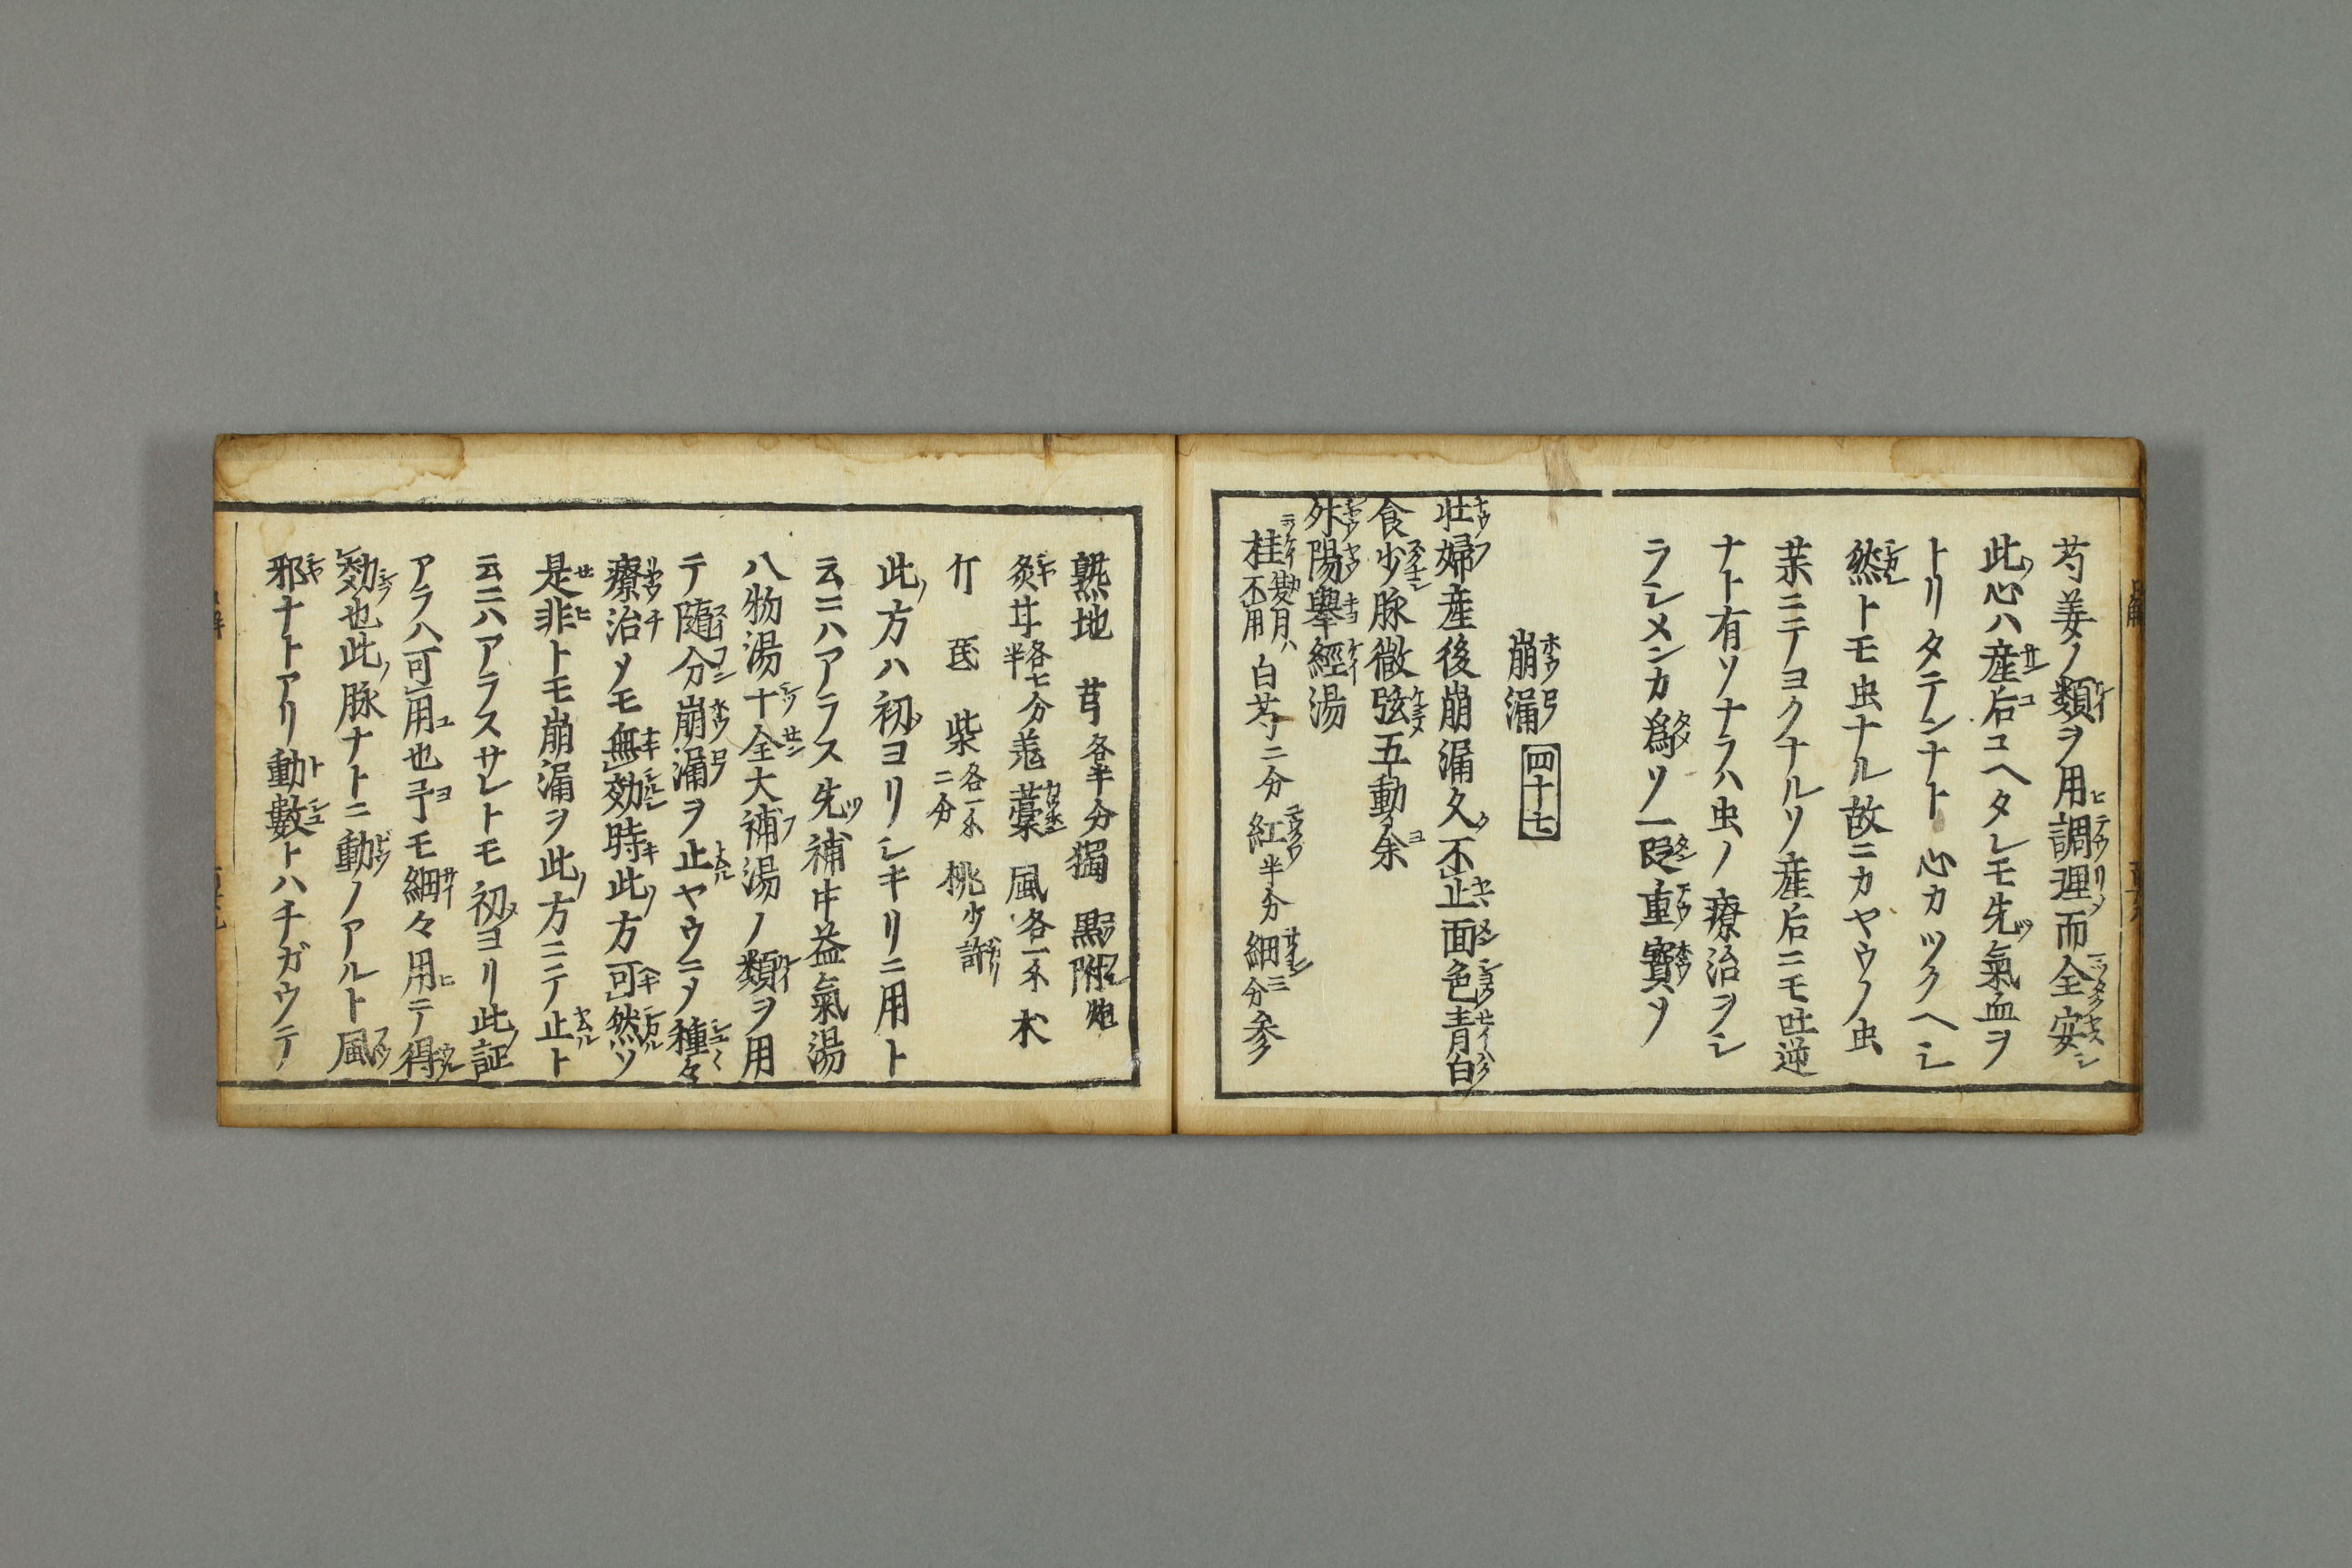 芍姜ノ類ヲ用調理而全安シ
此心ハ産后コヘタレモ先氣血ヲ
トリタテンナト心カツクヘシ
然トモ虫ナル故ニカヤウノ虫
薬ニテヨクナルソ産后ニモ吐逆
ナト有ソナラハ虫ノ療治ヲシ
ラシメンカ為ソ一段重寶ソ
崩漏 四十七
壮婦産後崩漏久不止面色青白
食少脉微弦五動余
升陽舉經湯
桂 夏月ハ不用 白芍二分 紅半分 細三分 参
熟地 芎各半分 獨 黒附炮
炙甘各七分半 羗 藁 風各一分 朮
芪 柴各一分二分 桃少許
此方ハ初ヨリシキリニ用ト
云ニハアラス先補中益氣湯
八物湯十全大補湯ノ類ヲ用
テ随分崩漏ヲ止ヤウニメ種々
療治メモ無効時此方可然ソ
是非トモ崩漏ヲ此方ニテ止ト
云ニハアラスサレトモ初ヨリ此証
アラハ可用也予モ細々用テ得
効也此脉ナトニ動ノアルト風
邪ナトアリ動數トハチガウテ